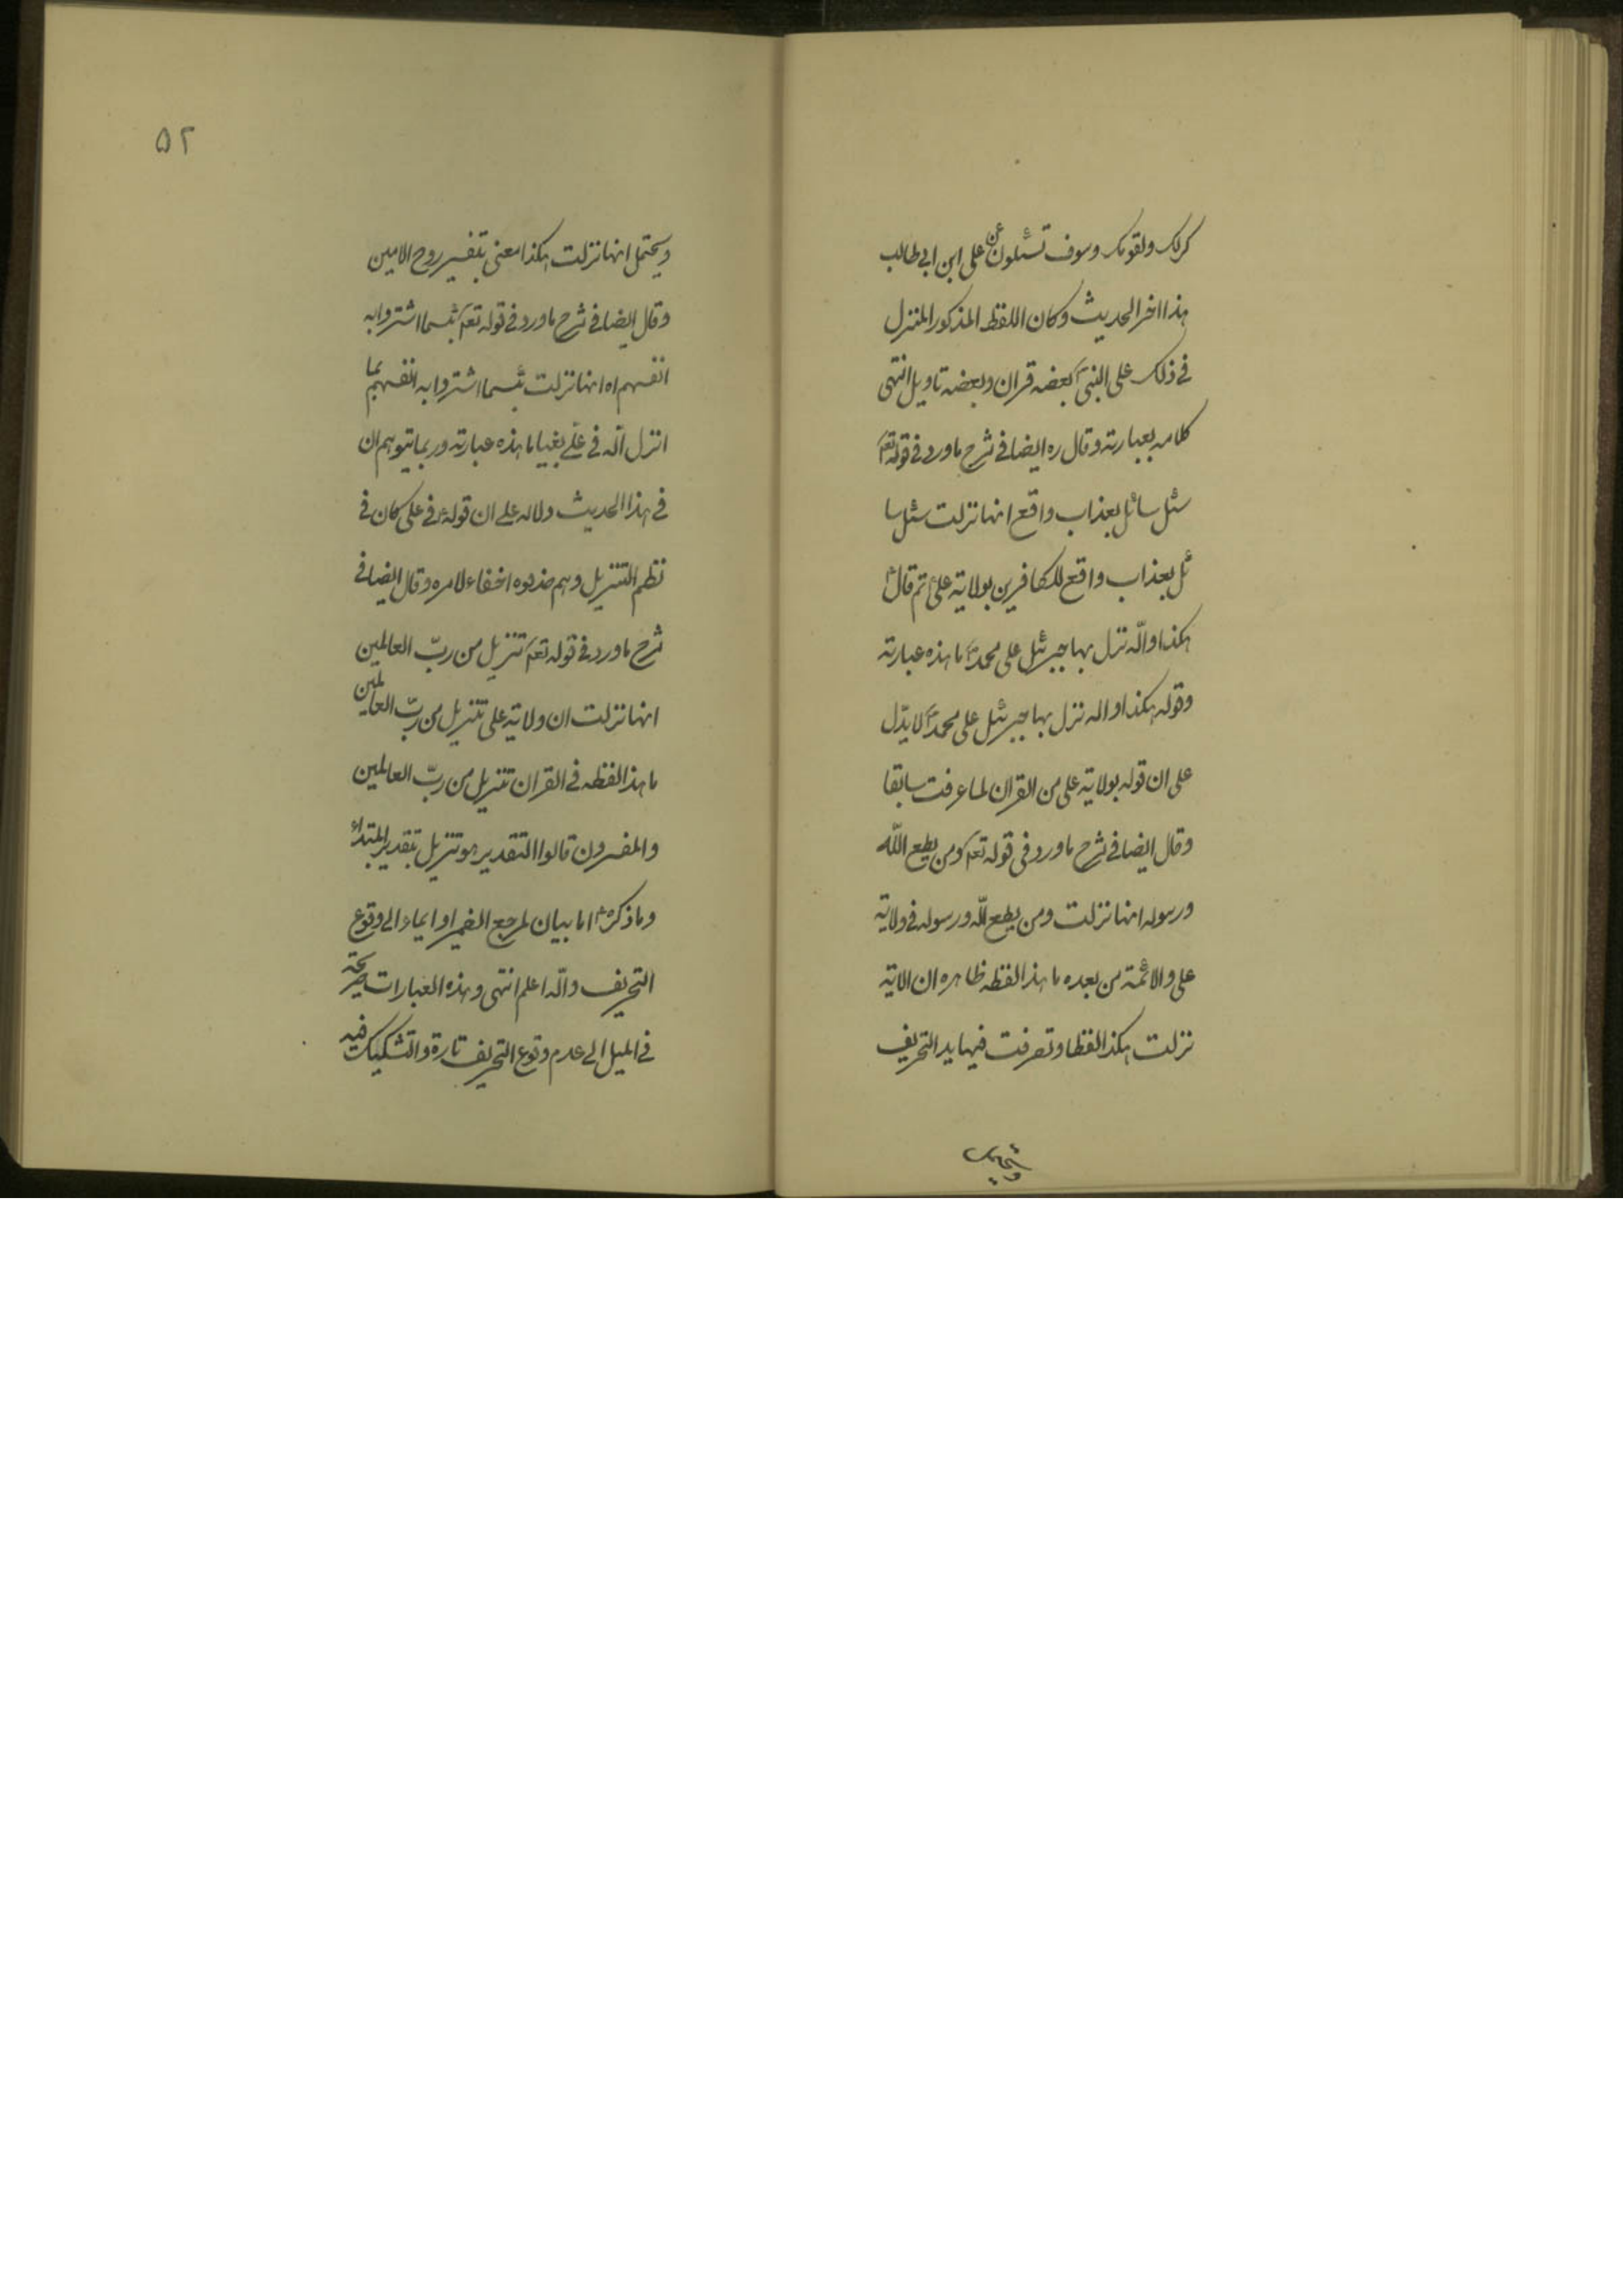 كرلك ولقومك وسوف تسئلون عن على ابن ابي طالب
هذا اخر الحديث وكان اللفظ المذكور المنزل
في ذلك على النبي ص بعضه قران وبعضه تاويل انتهى
كلامه بعبارته وقال ره ايضا في شرح ما ورد في قوله تعم
سئل سائل بعذاب واقع انها نزلت سئل سا
ئل بعذاب واقع للكافرين بولاية على ثم قال
هكذا والله نزل بها جبرئيل على محمد ص ما هذه عبارته
وقوله هكذا والله نزل بها جبرئيل على محمد ص لا يدل
على ان قوله بولاية على من القران لما عرفت سابقا
وقال ايضا في شرح ما ورد في قوله تعم ومن يطع الله
ورسوله انها نزلت ومن يطع الله ورسوله في ولاية
على والائمة من بعده ما هذا لفظه ظاهره ان الاية
نزلت هكذا لفظا وتصرفت فيها يد التحريف
ويحتمل
٥٢
ويحتمل انها نزلت هكذا معنى بتفسير روح الامين
وقال ايضا في شرح ما ورد في قوله تعم بئسما اشتروا به
انفسهم اه انها نزلت بئسما اشتروا به انفسهم بما
انزل الله في على بغيا ما هذه عبارته وربما يتوهم ان
في هذا الحديث دلالة على ان قوله في على كان في
نظم التنزيل وهم حذفوه اخفاء لامره وقال ايضا في
شرح ما ورد في قوله تعم تنزيل من ربّ العالمين
انها نزلت ان ولاية على تنزيل من ربّ العالمين
ما هذا لفظه في القران تنزيل من ربّ العالمين
والمفسرون قالوا التقدير هو تنزيل بتقدير المبتداء
وما ذكره اما بيان لمرجع الضمير او ايماء الى وقوع
التحريف والله اعلم انتهى وهذه العبارات صريحة
في الميل الى عدم وقوع التحريف تارة والتشكيك فيه